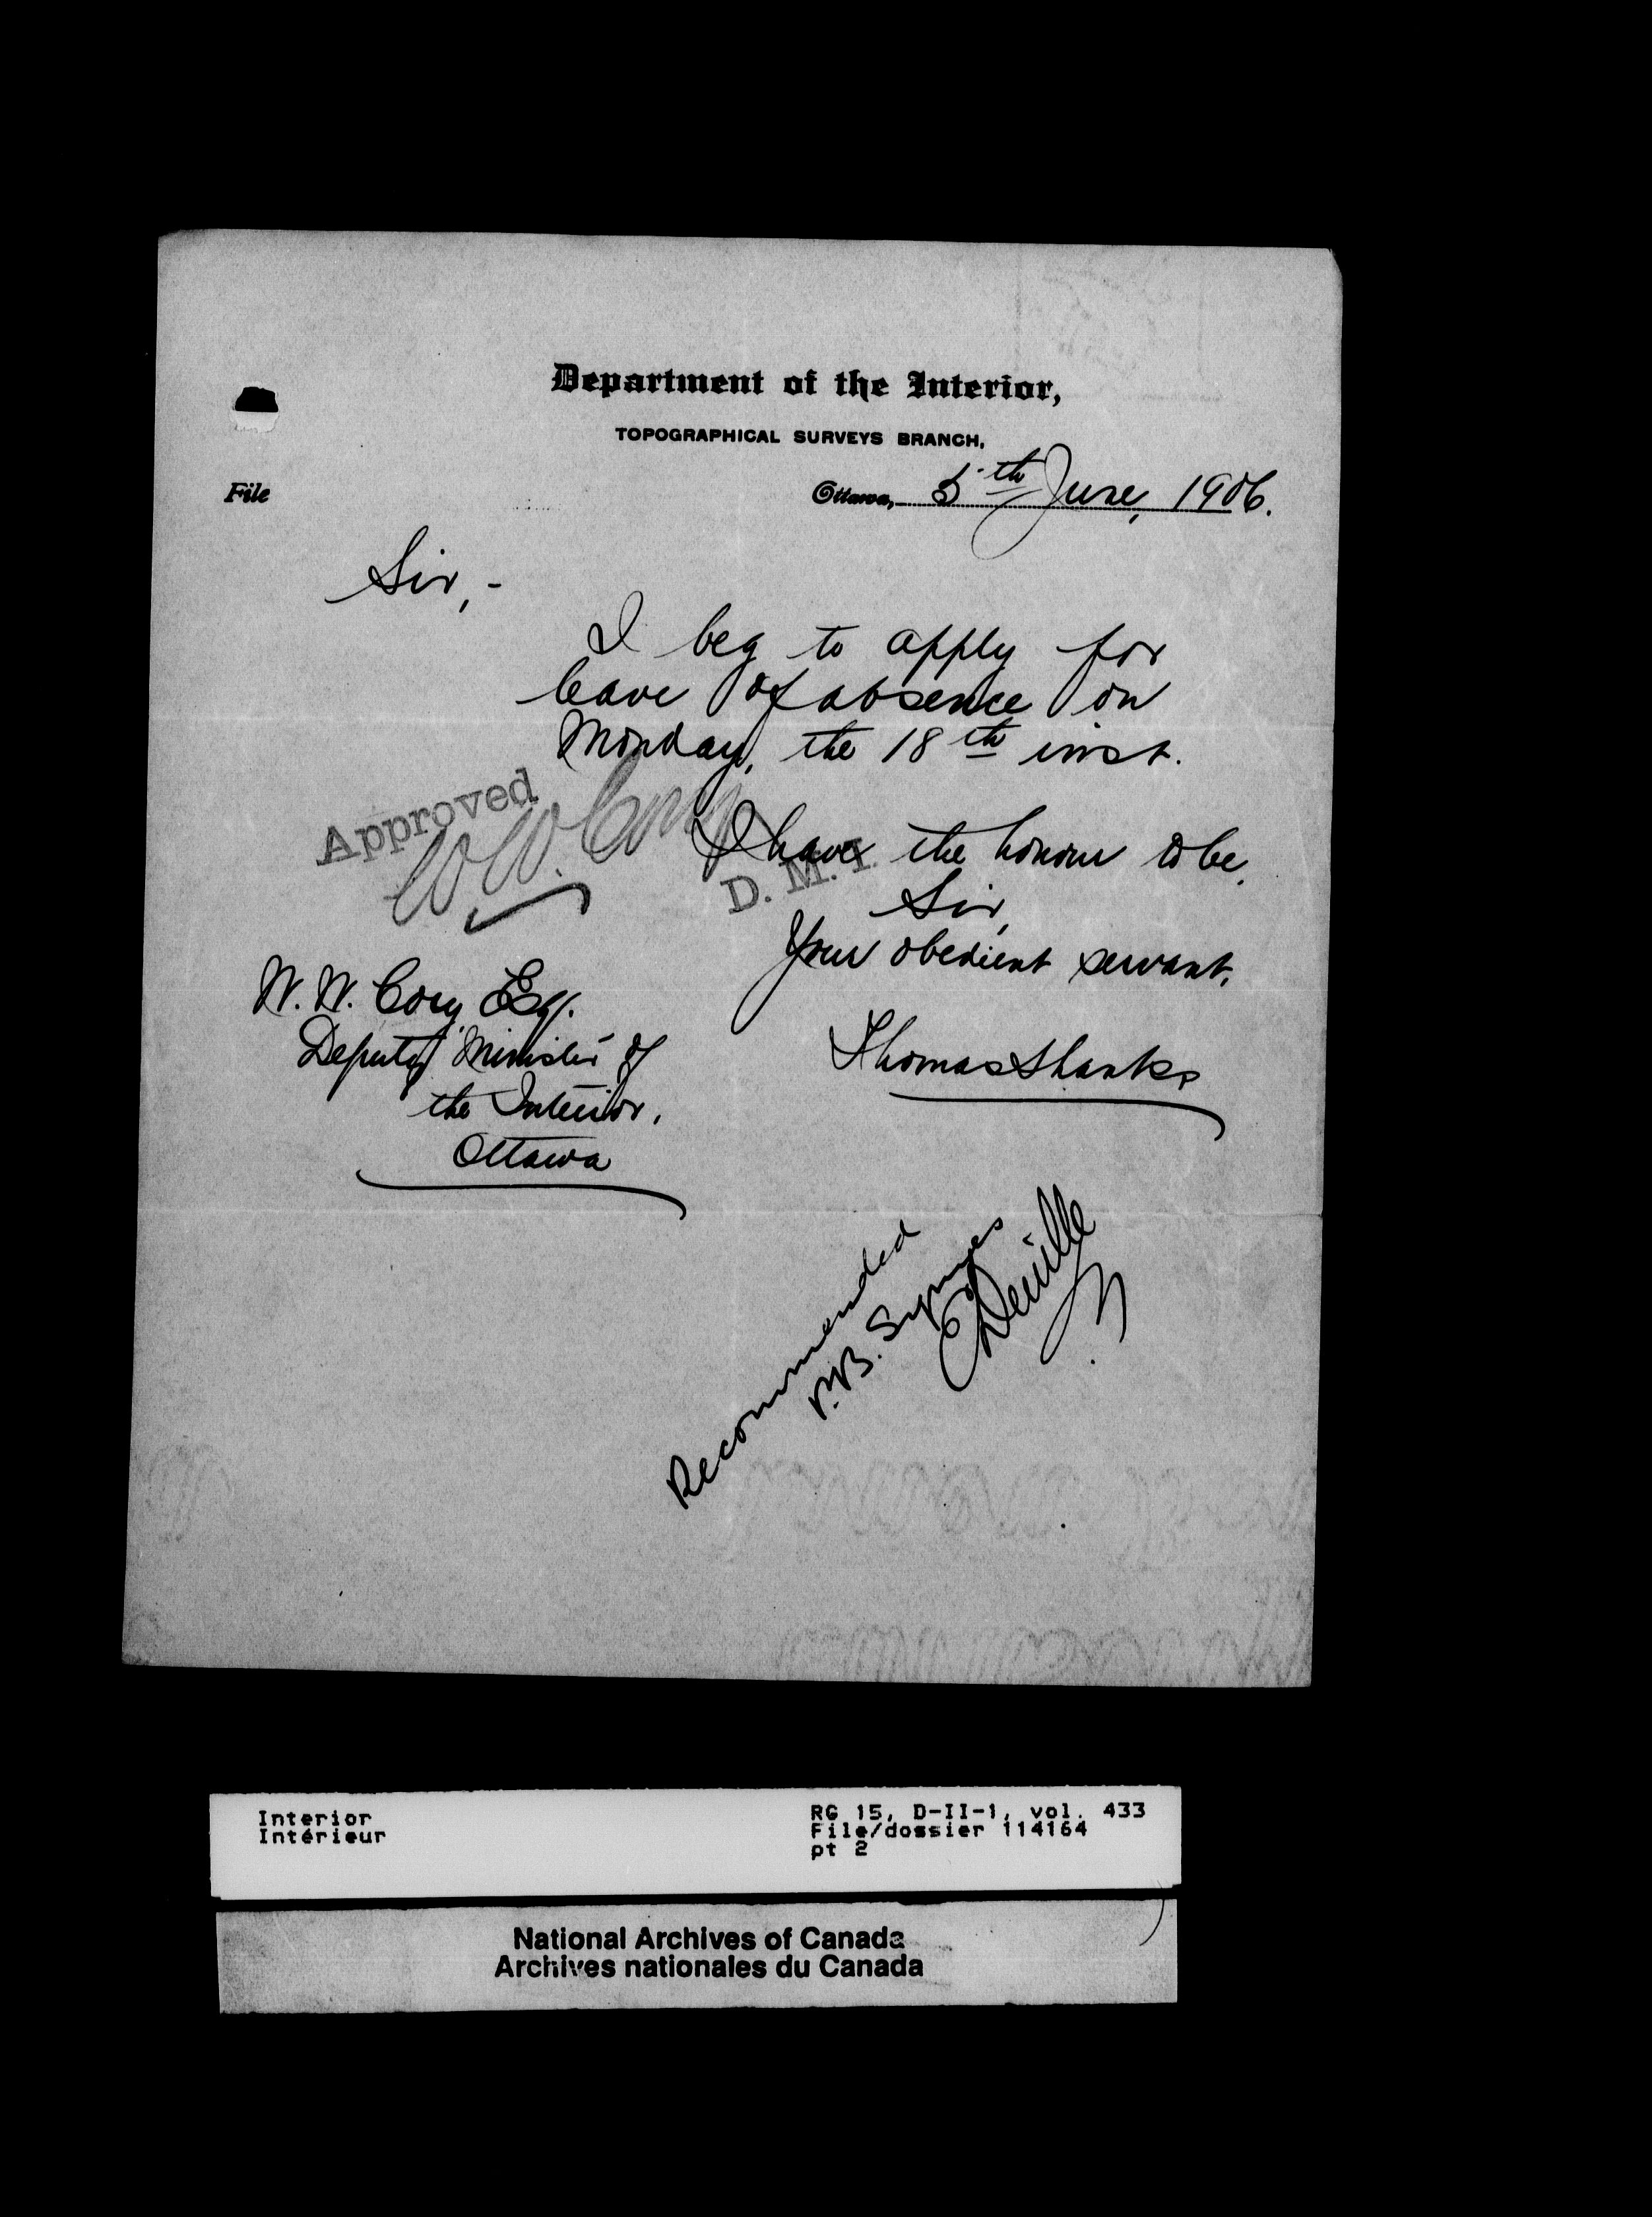 Department of the Interior,
TOPOGRAPHICAL SURVEYS BRANCH,
File
Ottawa, 5th June, 1906.
Sir,-
I beg to apply for
leave of absence on
Monday, the 18th inst.
Approved
W. W. Cory
D. M. I.
I have the honour to be,
Sir,
Your obedient servant,
Thomas Shanks
W. W. Cory Esq.
Deputy Minister of
the Interior,
Ottawa
Recommended
P.B. Symes
E Deville
Interior
Intérieur
RG 15, D-II-1, vol. 433
File/dossier 114164
pt 2
National Archives of Canada
Archives nationales du Canada